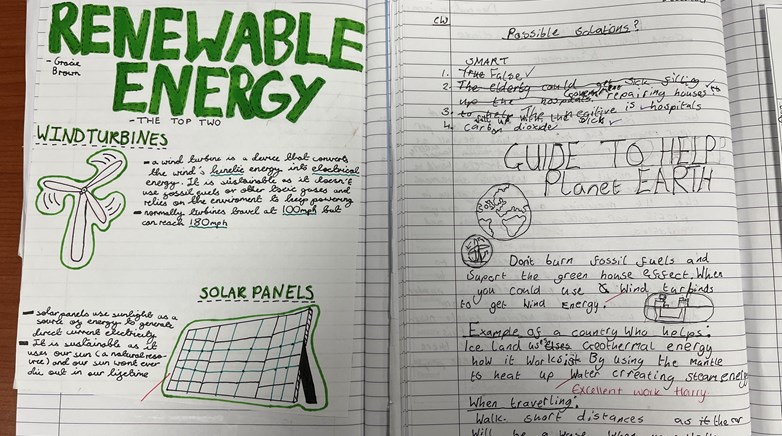 RENEWABLE
ENERGY
- Gracie
Brown
- THE TOP TWO
WIND TURBINES
- a wind turbine is a device that converts
the wind's kinetic energy into electrical
energy. It is sustainable as it doesn't
use fossil fuels or other toxic gases and
relies on the enviroment to keep powering
- normally turbines travel at 100mph but
can reach 180mph
SOLAR PANELS
- solar panels use sunlight as a
source of energy to generate
direct current electricity
- It is sustainable as it
uses our sun (a natural reso-
urce) and our sun wont ever
die out in our lifetime
CW
Possible Solutions?
SMART
1. True False
2. The elderly could get sick filling
up the hospitals. repairing houses
3. to help The negitive is hospitals
sick
4. carbon dioxide
GUIDE TO HELP
Planet EARTH
Don't burn fossil fuels and
Suport the green house effect. When
you could use Wind turbinds
to get Wind Energy.
Example of a country who helps:
Ice Land uses Geothermal energy
how it works is by using the Mantle
to heat up Water crreating steam energy
Excellent work Harry
When travelling:
Walk short distances as it the car
Will be a When